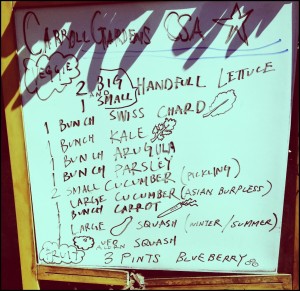 CARROLL GARDENS CSA
VEGGIE
2 BIG AND HANDFULL LETTUCE
1 SMALL
1 BUNCH SWISS CHARD
1 BUNCH KALE
1 BUNCH ARUGULA
1 BUNCH PARSLEY
2 SMALL CUCUMBER (PICKLING)
LARGE CUCUMBER (ASIAN BURPLESS)
BUNCH CARROT
LARGE SQUASH (WINTER/SUMMER)
SQUASH
FRUIT 3 PINTS BLUEBERRY